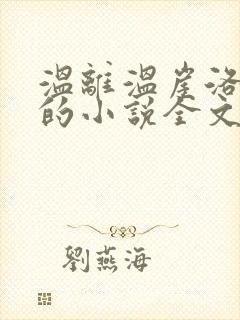 溫離溫崖洛
的小説全文
劉燕海